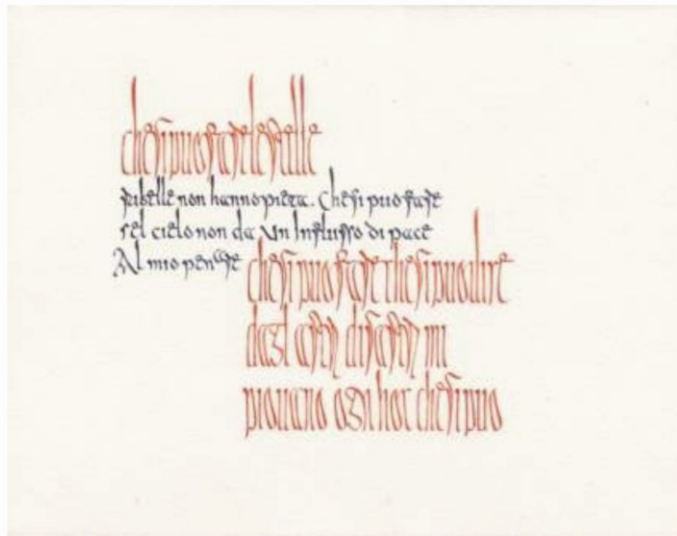 chesipuofarelestelle
ribelle non hanno pieta. Chesi puo fare
sel cielo non da Un Influsso di pace
Al mio penare chesi puo fare chesipuodire
dagl astri disastri mi
piouano ogni hor chesi puo